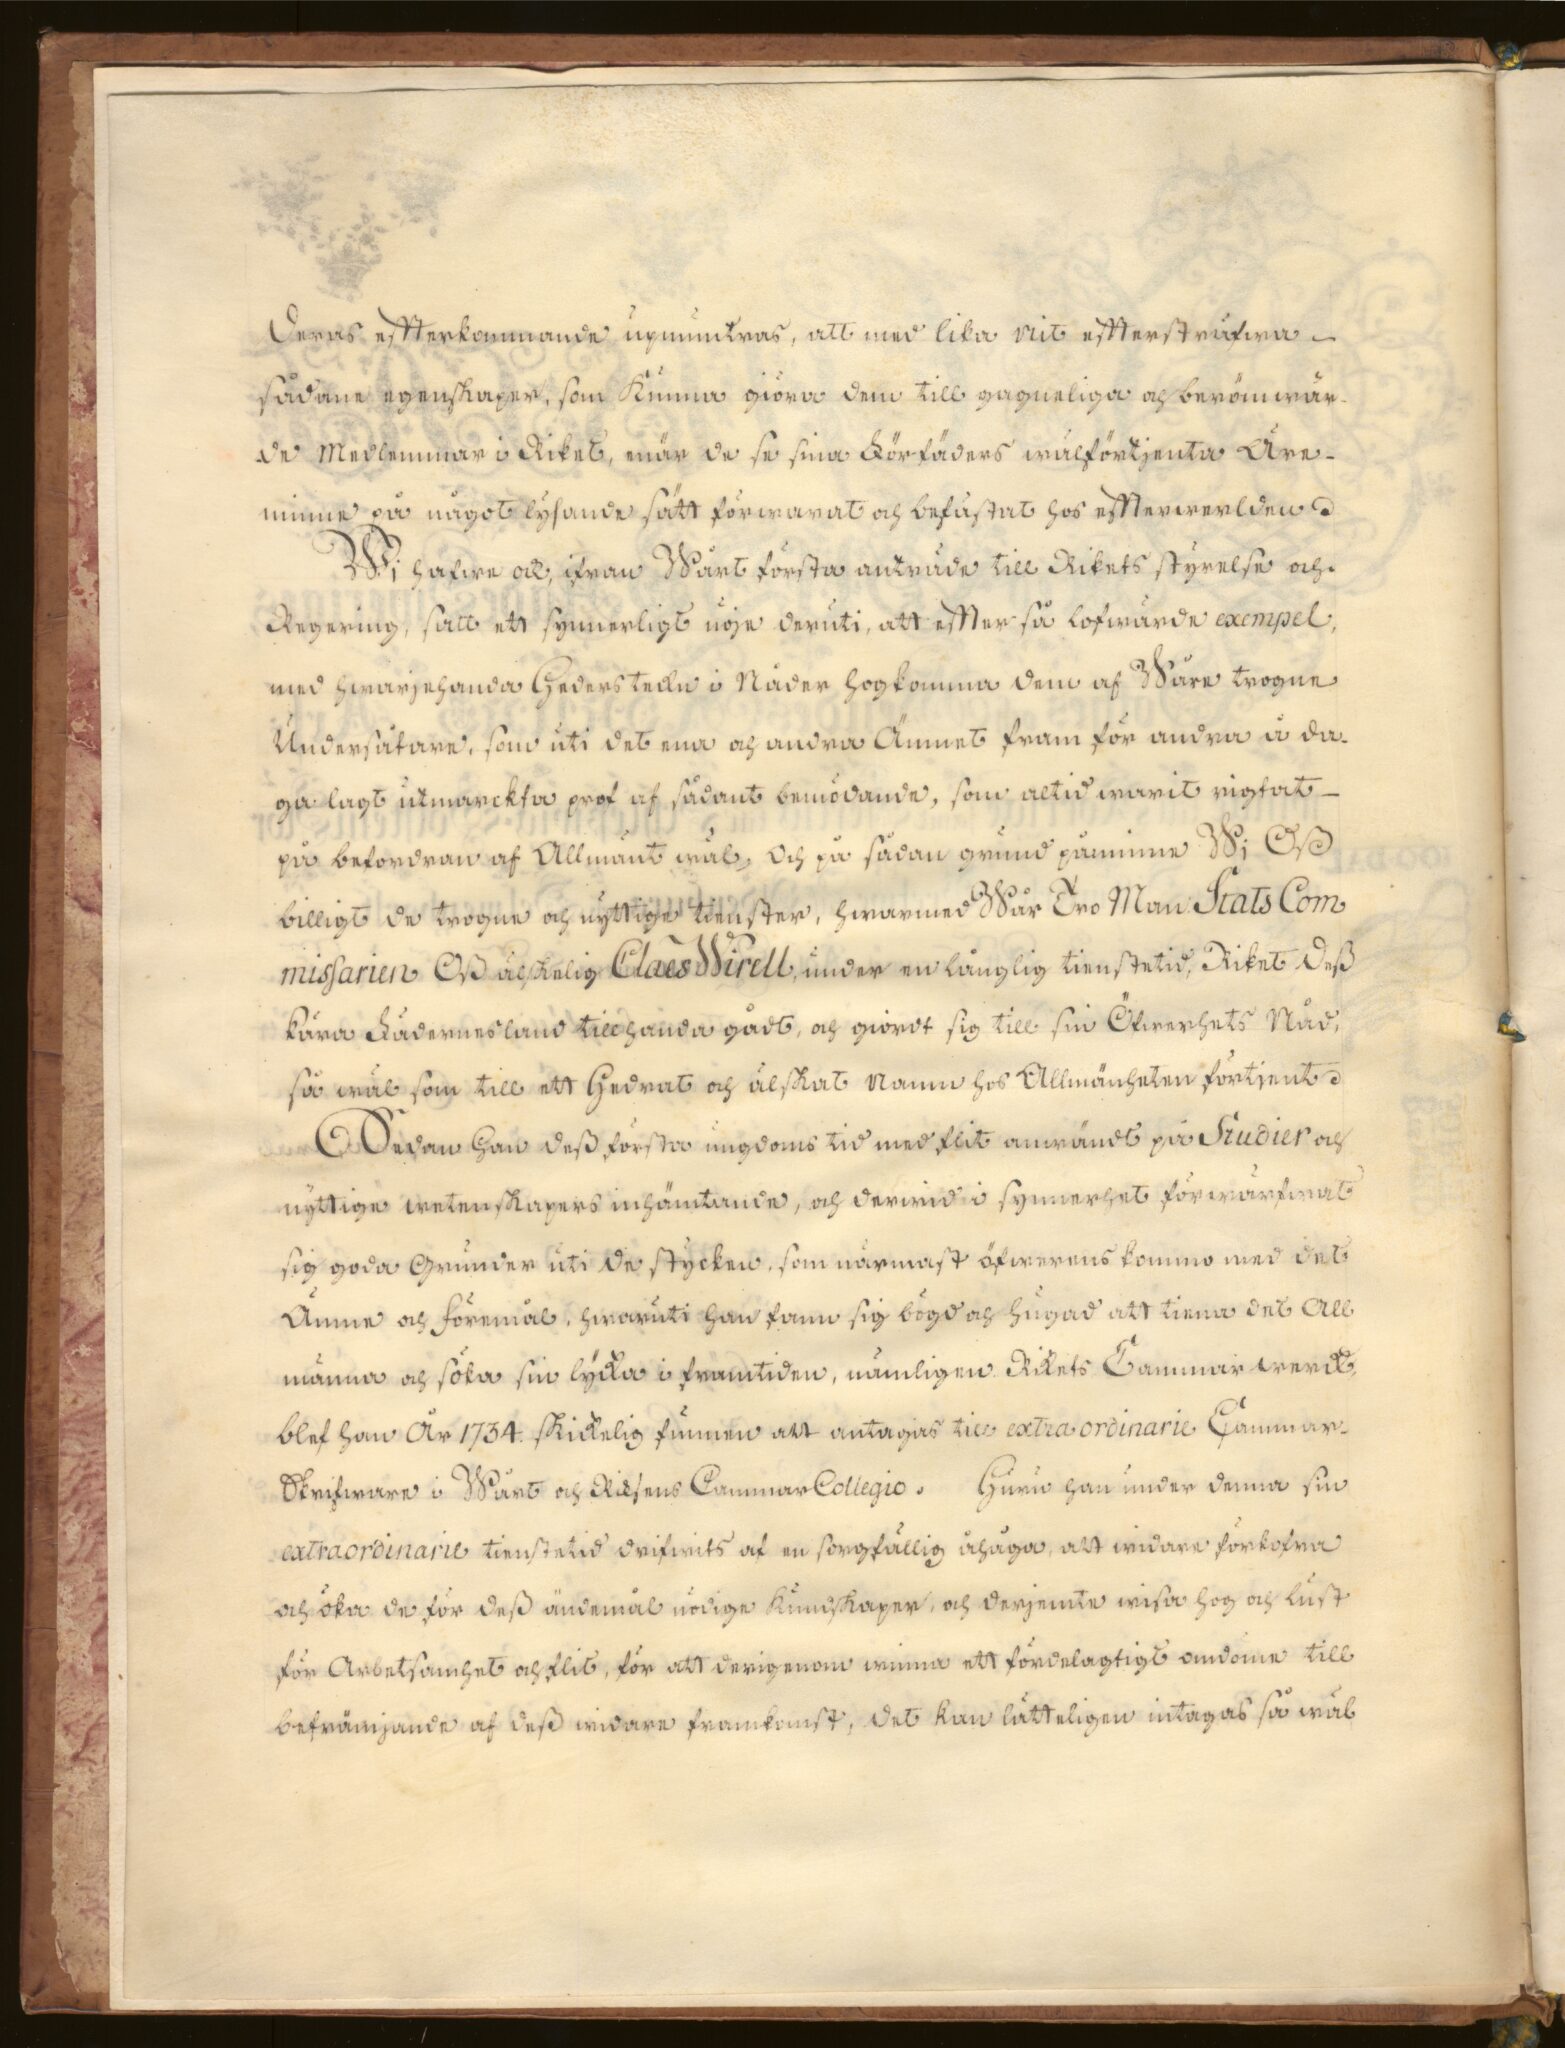 Deras effterkommande upmuntras, att med lika nit effterstræfwa
sådane egenskaper, som kunna giöra dem till gagneliga och berömwär-
de Medlemmar i Riket, enär de se sina Förfäders wälförtjenta Äre-
minne på något lysande sätt förwarat och befästat hos effterwerlden
Wj hafwe ock, ifrån Wårt första anträde till Rikets styrelse och
Regering, satt ett synnerligt nöje deruti, att effter så lofwärde exempel,
med hwarjehanda Heders teckn i Nåder hogkomma dem af Wåre trogne
Undersåtare, som uti det ena och andra Ämnet fram för andra å da-
ga lagt utmärckta prof af sådant bemödande, som altid warit rigtat
på befordran af Allmänt wäl, Och på sådan grund påminne Wj Oß
billigt de trogne och nyttige tienster, hwarmed Wår Tro Man Stats Com
missarien Oß älskelig Claes Wirell, under en långlig tienstetid, Riket Deß
kära Fädernesland tillhanda gådt, och giordt sig till sin Öfwerhets Nåd,
så wäl som till ett Hedrat och älskat Namn hos Allmänheten förtjent
Sedan Han deß första ungdoms tid med flit anwändt på Studier och
nyttige wetenskapers inhämtande, och derwid i synnerhet förwärfwat
sig goda Grunder uti de stycken, som närmast öfwerens kommo med det
Ämne och föremål, hwaruti han fann sig bögd och hugad att tiena det All
männa och söka sin lycka i framtiden, nämligen Rikets Cammar werck,
blef han År 1734. skickelig funnen att antagas till extra ordinarie Cammar-
Skrifware i Wårt och Riksens Cammar Collegio. Huru han under denna sin
extraordinarie tienstetid drifwits af en sorgfällig åhåga, att widare förkofra
och öka de för deß ändemål nödige Kundskaper, och derjemte wisa hog och lust
för Arbetsamhet och flit, för att derigenom winna ett fördelagtigt omdöme till
befrämjande af deß widare framkomst, det kan lätteligen intagas så wäl